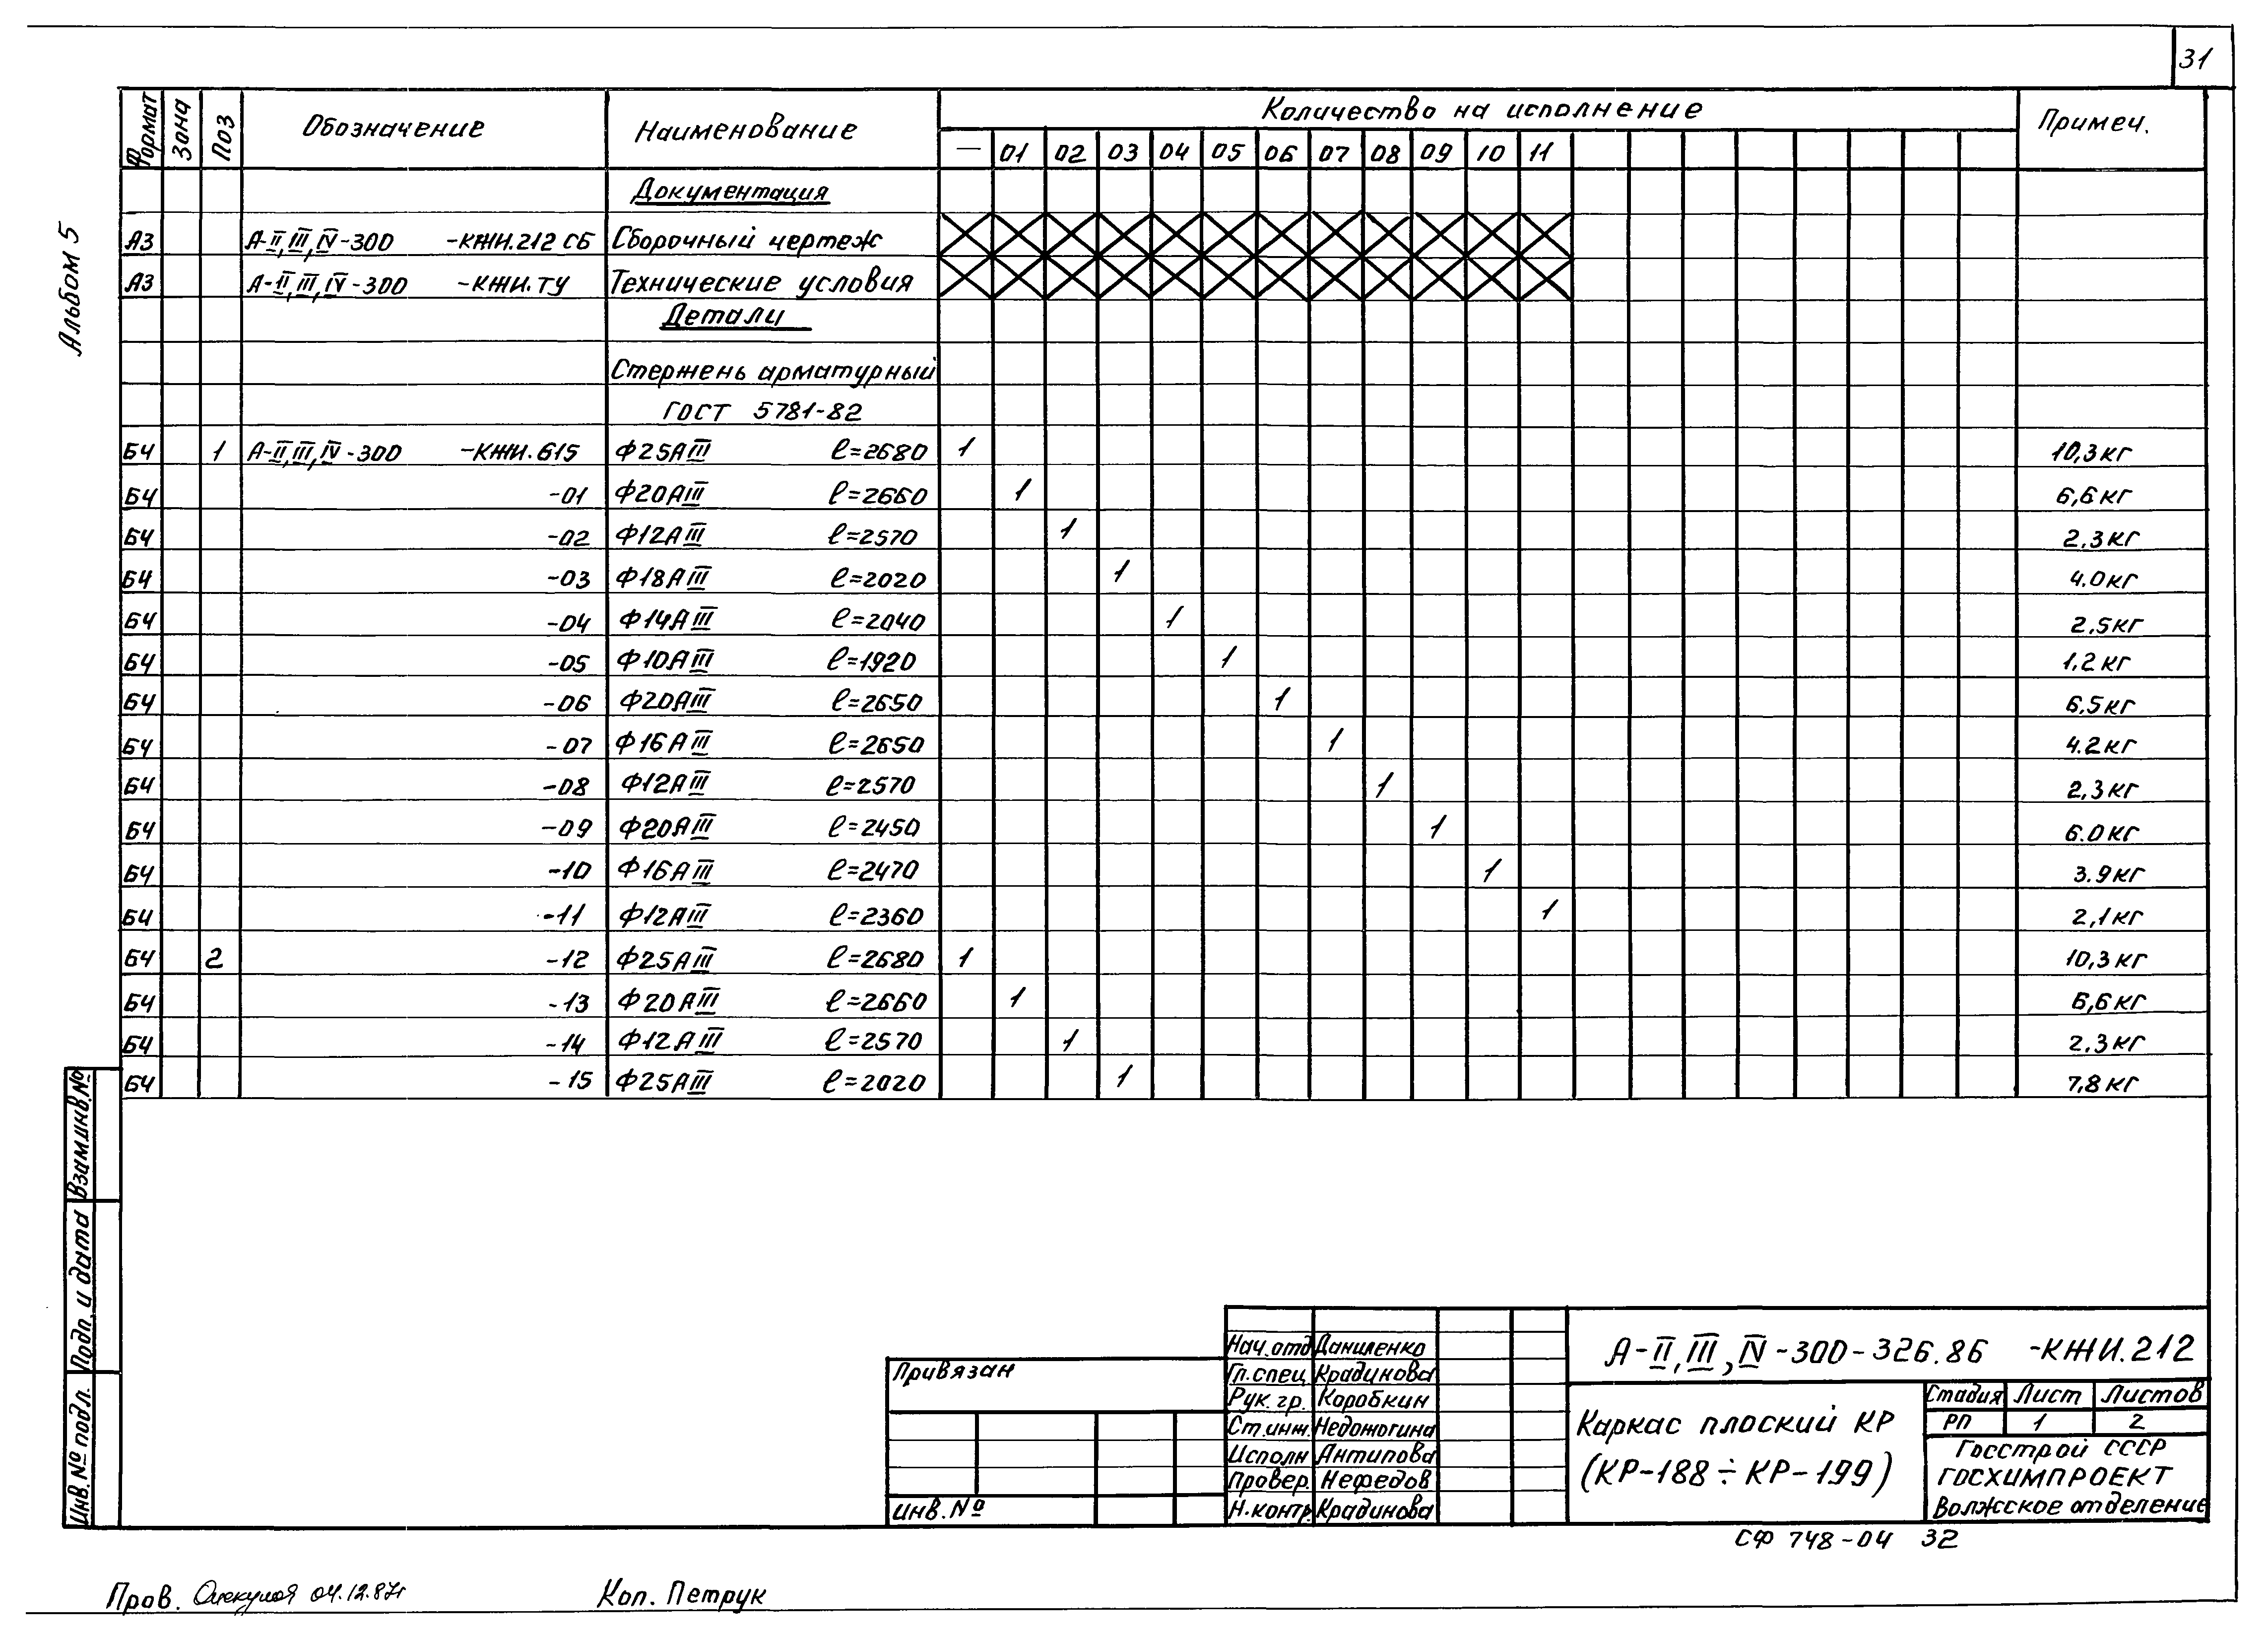 31
Альбом 5
Формат Зона Поз Обозначение Наименование Количество на исполнение Примеч.
— 01 02 03 04 05 06 07 08 09 10 11
Документация
А3 А-II,III,IV-300 -КЖИ.212 СБ Сборочный чертеж
А3 А-II,III,IV-300 -КЖИ.ТУ Технические условия
Детали
Стержень арматурный
ГОСТ 5781-82
БЧ 1 А-II,III,IV-300 -КЖИ.615 Ф25АIII ℓ=2680 1 10,3кг
БЧ -01 Ф20АIII ℓ=2660 1 6,6кг
БЧ -02 Ф12АIII ℓ=2570 1 2.3кг
БЧ -03 Ф18АIII ℓ=2020 1 4.0кг
БЧ -04 Ф14АIII ℓ=2040 1 2,5кг
БЧ -05 Ф10АIII ℓ=1920 1 1.2кг
БЧ -06 Ф20АIII ℓ=2650 1 6,5кг
БЧ -07 Ф16АIII ℓ=2650 1 4.2кг
БЧ -08 Ф12АIII ℓ=2570 1 2,3кг
БЧ -09 Ф20АIII ℓ=2450 1 6.0кг
БЧ -10 Ф16АIII ℓ=2470 1 3.9кг
БЧ -11 Ф12АIII ℓ=2360 1 2,1кг
БЧ 2 -12 Ф25АIII ℓ=2680 1 10,3кг
БЧ -13 Ф20АIII ℓ=2660 1 6,6кг
БЧ -14 Ф12АIII ℓ=2570 1 2.3кг
БЧ -15 Ф25АIII ℓ=2020 1 7,8кг
Взам.инв.№
Подп. и дата
Инв.№ подл.
Привязан
Инв.№
Нач.отд Даниленко
Гл.спец Крадинова
Рук.гр. Коробкин
Ст.инж. Недожогина
Исполн Антипова
Провер. Нефедов
Н.контр. Крадинова
А-II,III,IV-300-326.86 -КЖИ.212
Каркас плоский КР
(КР-188÷КР-199)
Стадия Лист Листов
РП 1 2
Госстрой СССР
ГОСХИМПРОЕКТ
Волжское отделение
СФ 748-04 32
Пров. 04.12.87г Коп. Петрук